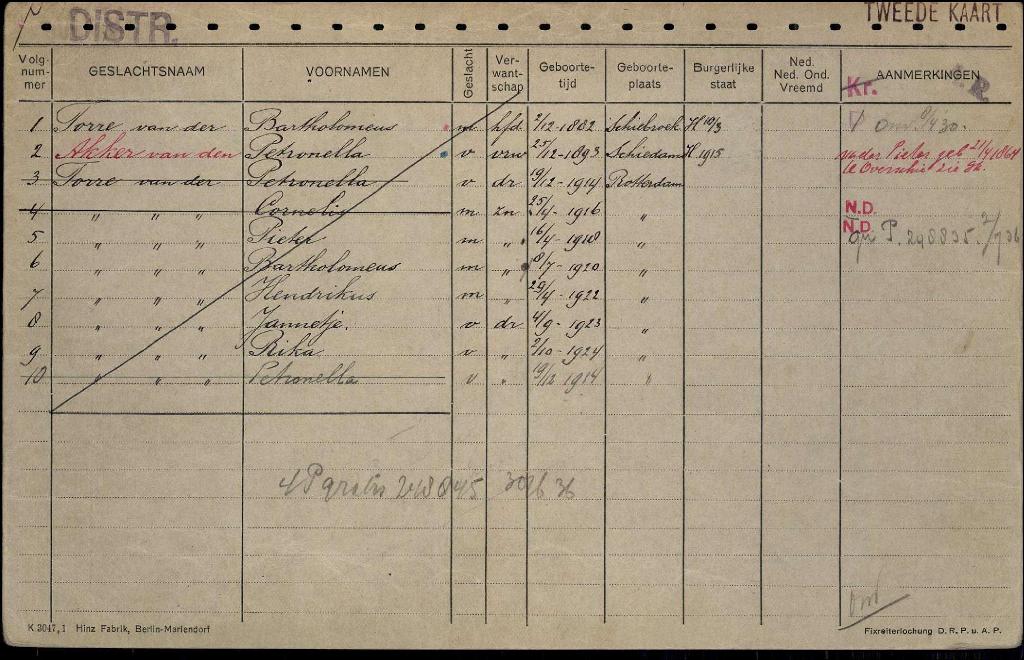 DISTR.
TWEEDE KAART
Volg- num- mer GESLACHTSNAAM VOORNAMEN Geslacht Ver- want- schap Geboorte- tijd Geboorte- plaats Burgerlijke staat Ned. Ned. Ond. Vreemd AANMERKINGEN
Kr.
1 Torre van der Bartholomeus m hfd 2/12-1882 Schiebroek H 10/3
2 Akker van den Petronella v vrw 25/12-1893 Schiedam H 1915 vader Pieter geb 21/4 1864
3 Torre van der Petronella v dr 19/12-1914 Rotterdam te Overschie zie
4 " " " Cornelis m zn 25/4-1916 " N.D.
5 " " " Pieter m " 16/4-1918 " N.D. P. 298835
6 " " " Bartholomeus m " 18/7-1920 "
7 " " " Hendrikus m " 29/4-1922 "
8 " " " Jannetje. v dr 4/9-1923 "
9 " " " Rika v " 2/10-1924 "
10 " " " Petronella v " 19/12 1914 "
P gratis
K 3047,1 Hinz Fabrik, Berlin-Mariendorf
Fixreiterlochung D. R. P. u. A. P.